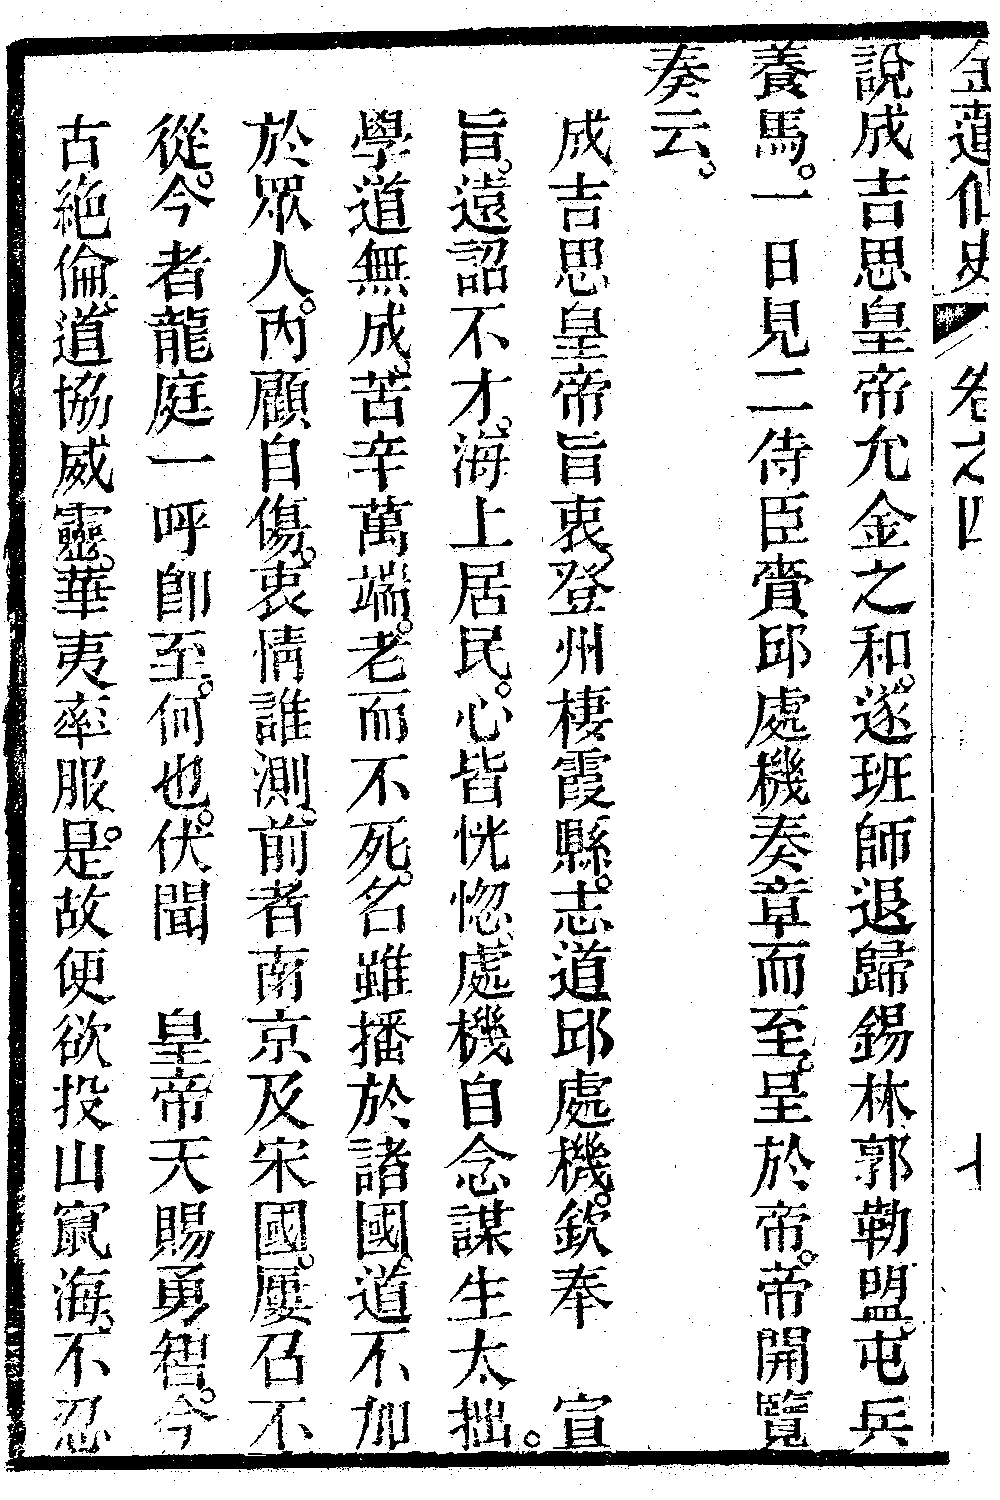 金蓮仙史　卷之四
說成吉思皇帝允金之和。遂班師退歸錫林郭勒盟。屯兵
養馬。一日見二侍臣賫邱處機奏章而至。呈於帝。帝開覽
奏云。
成吉思皇帝旨衷。登州棲霞縣。志道邱處機。欽奉　宣
旨。遠詔不才。海上居民。心皆恍惚。處機自念謀生太拙。
學道無成。苦辛萬端。老而不死。名雖播於諸國。道不加
於眾人。內顧自傷。衷情誰測。前者南京及宋國。屢召不
從。今者龍庭一呼卽至。何也。伏聞　皇帝天賜勇智。今
古絶倫。道協威靈。華夷率服。是故便欲投山竄海。不忍